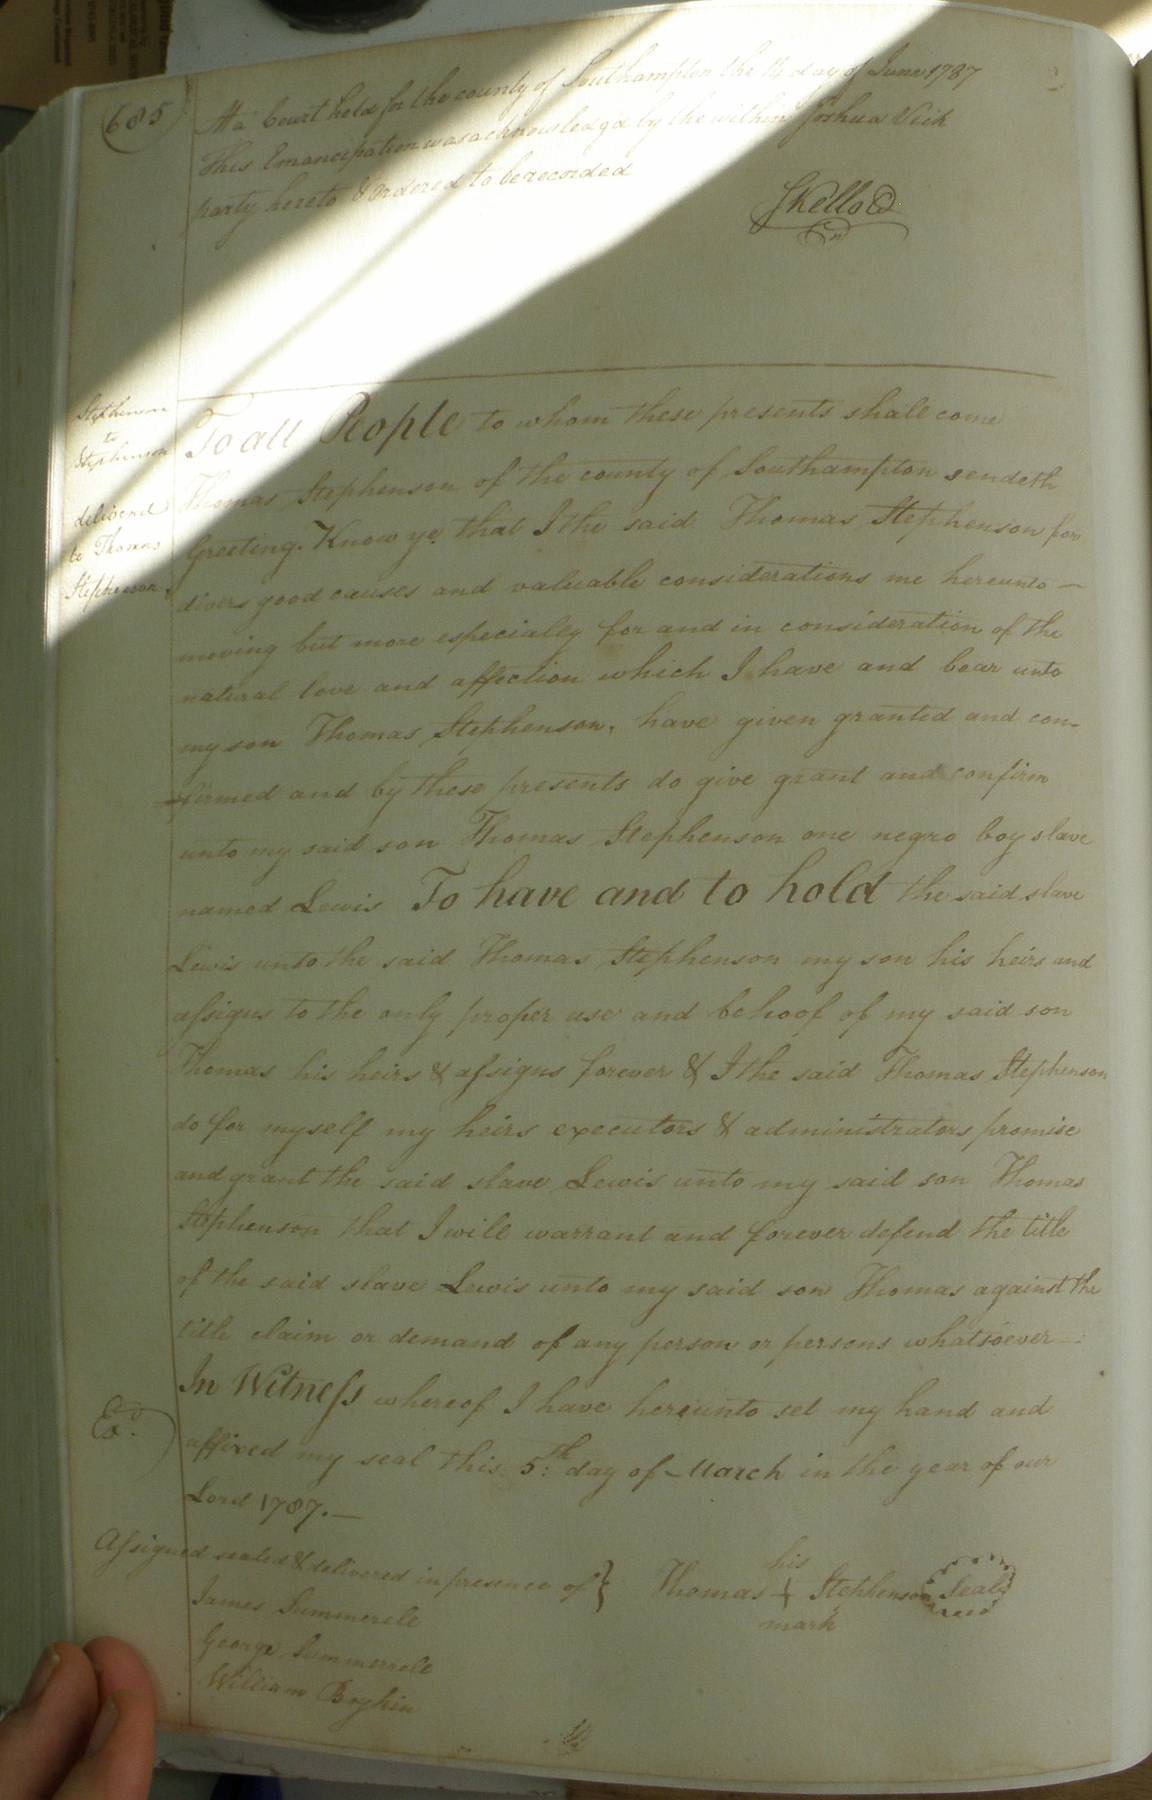 (685)
At a Court held for the county of Southampton the 14 day of June 1787
This Emancipation was acknowledged by the within Joshua Vick
party hereto & ordered to be recorded
SKello Cl
Stephenson
to
Stephenson
deliverd
to Thomas
Stephenson
To all People to whom these presents shall come
Thomas Stephenson of the county of Southampton sendeth
Greeting. Know ye that I the said Thomas Stephenson for
divers good causes and valuable considerations me hereunto —
moving but more especialey for and in consideration of the
natural love and affection which I have and bear unto
my son Thomas Stephenson, have given granted and con-
-firmed and by these presents do give grant and confirm
unto my said son Thomas Stephenson one negro boy slave
named Lewis To have and to hold the said slave
Lewis unto the said Thomas Stephenson my son his heirs and
assigns to the only proper use and behoof of my said son
Thomas his heirs & assigns forever & I the said Thomas Stephenson
do for myself my heirs executors & administrators promise
and grant the said slave Lewis unto my said son Thomas
Stephenson that I will warrant and forever defend the title
of the said slave Lewis unto my said son Thomas against the
title claim or demand of any person or persons whatsoever —
In Witness whereof I have hereunto set my hand and
Ex.d
affixed my seal this 5.th day of March in the year of our
Lord 1787. —
Assigned sealed & delivered in presence of } Thomas + Stephenson Seal
his
mark
James Summerele
George Summerrele
William